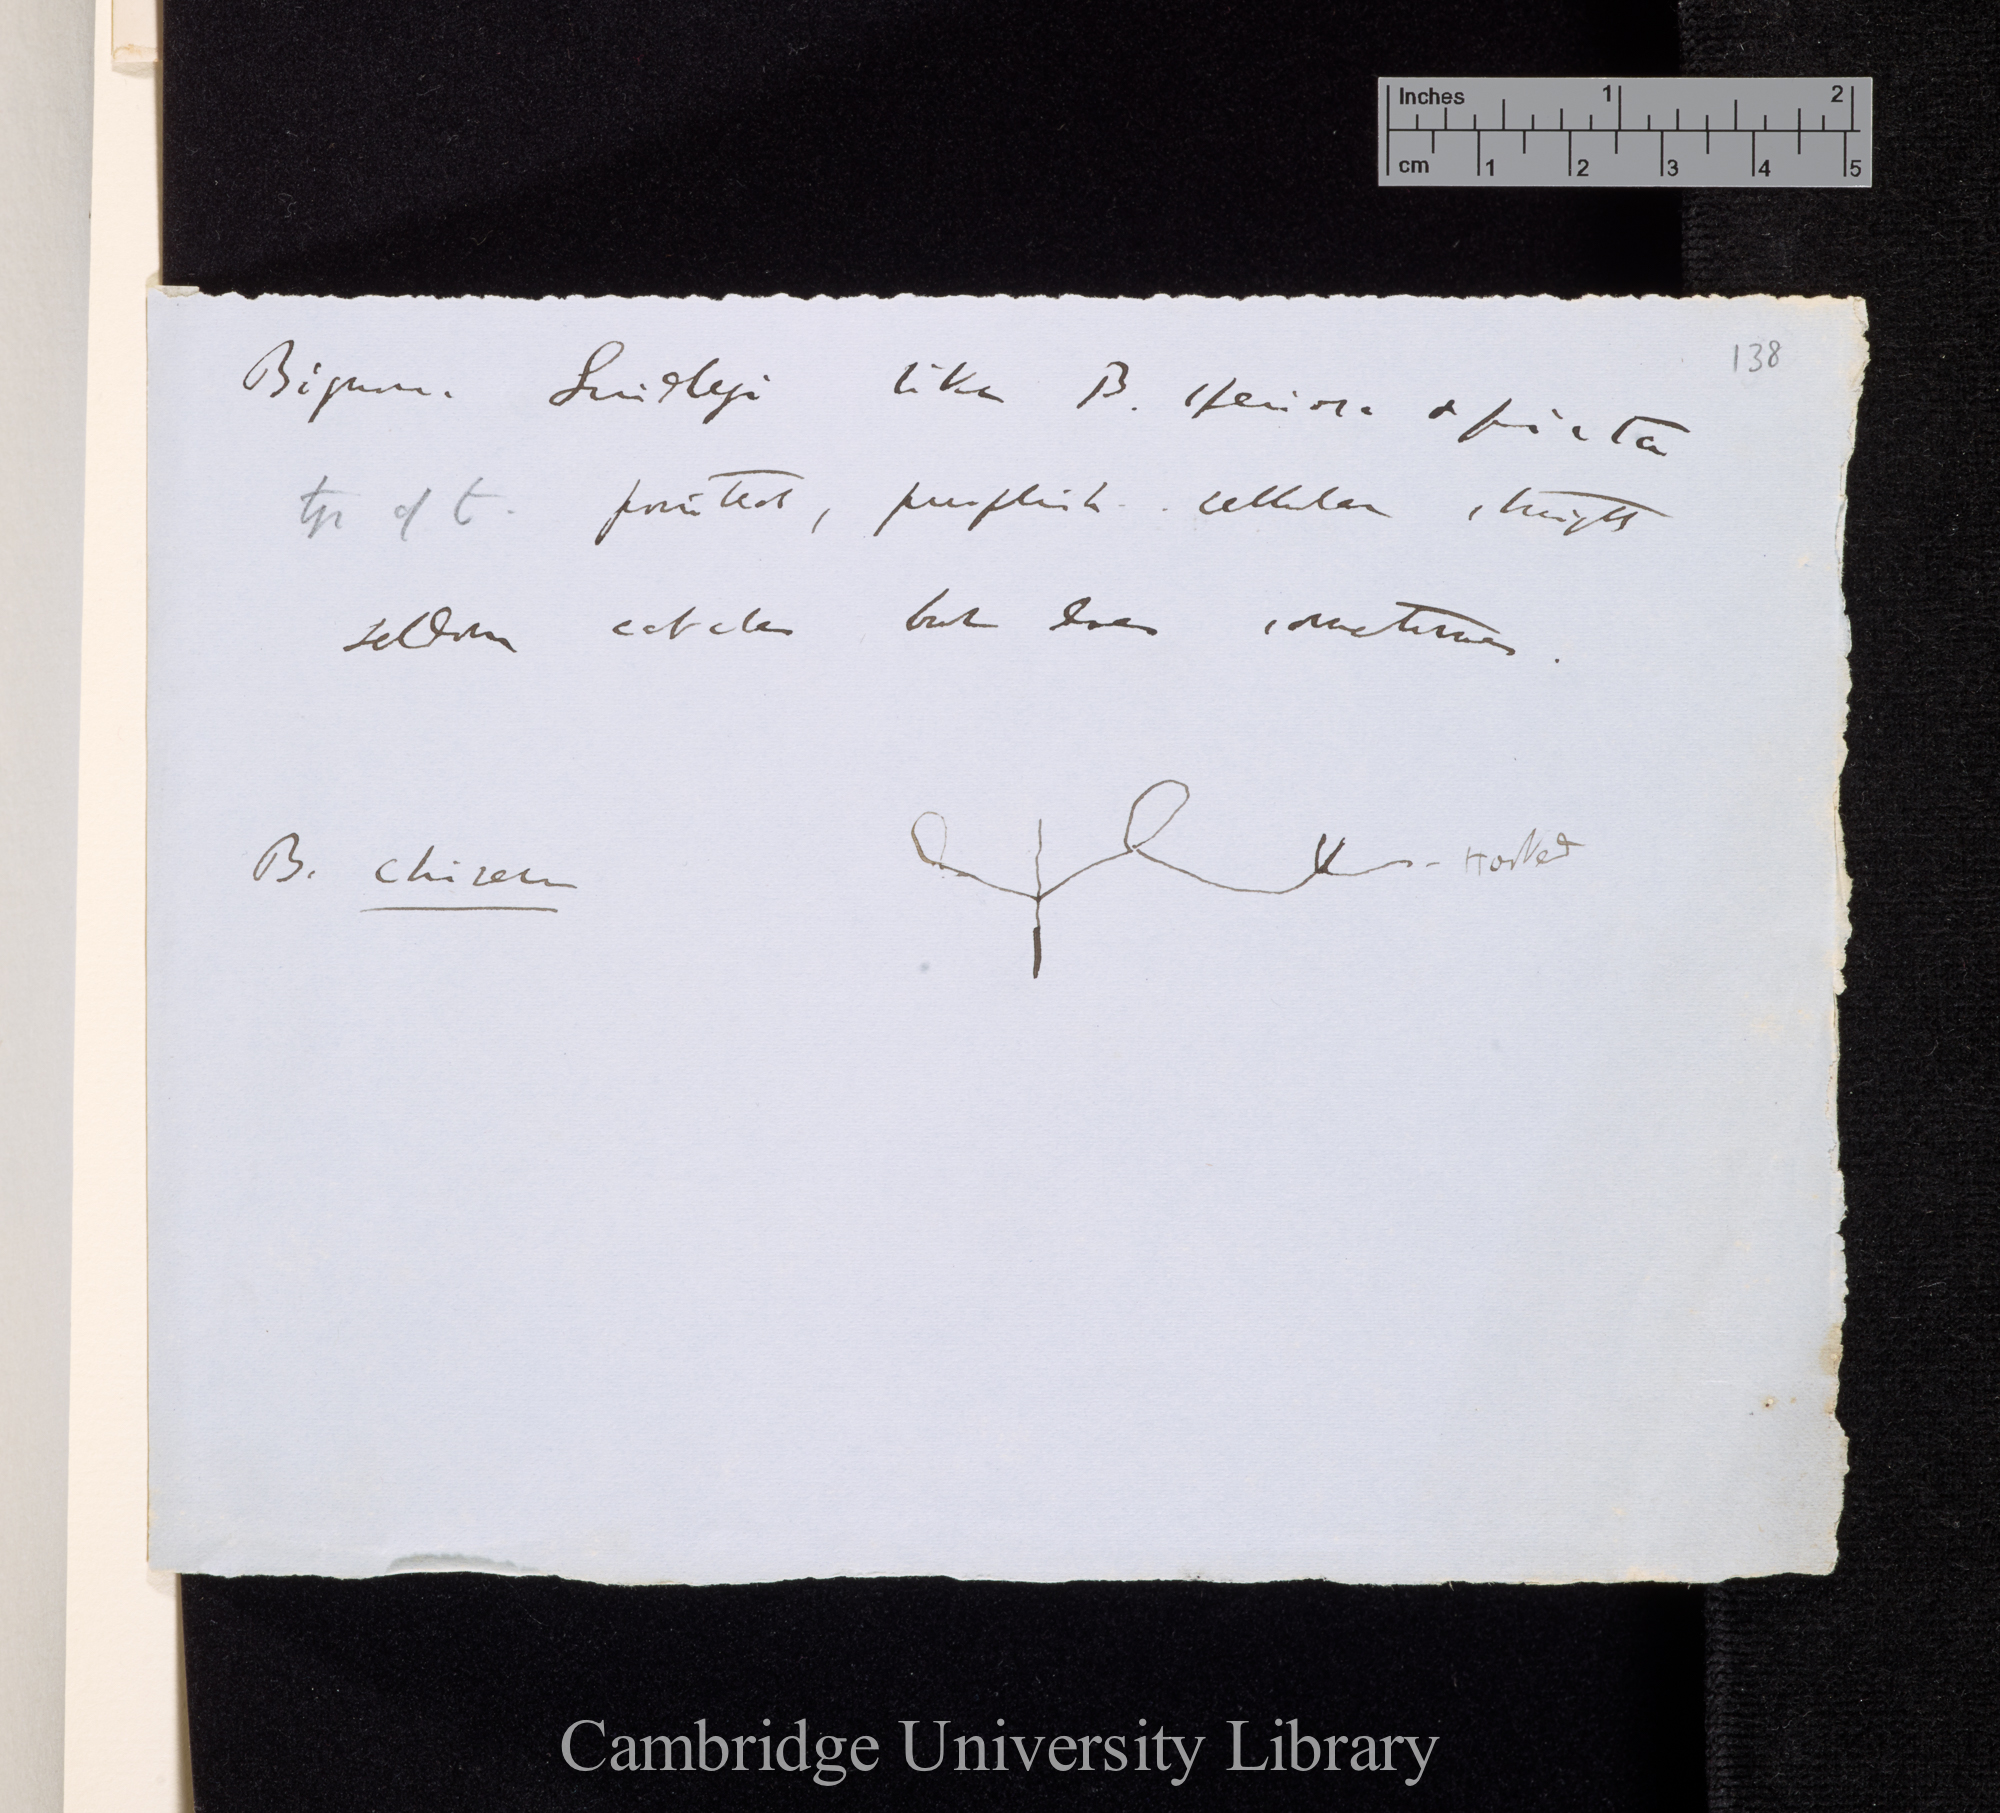 Inches 1 2
cm 1 2 3 4 5
138
Bignon. Lindleyi like B. speciosa & picta
tip of t. pointed, purplish cellular, straight
seldom catches but does sometimes.
B.
Hooked
Cambridge University Library